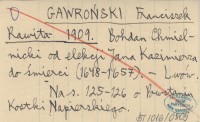 O GAWROŃSKI Franciszek
Rawita 1909. Bohdan Chmiel-
nicki od elekcji Jana Kazimierza
do śmierci (1648-1657). - Lwów
Na s. 125-126 o
Kostki Napierskiego.